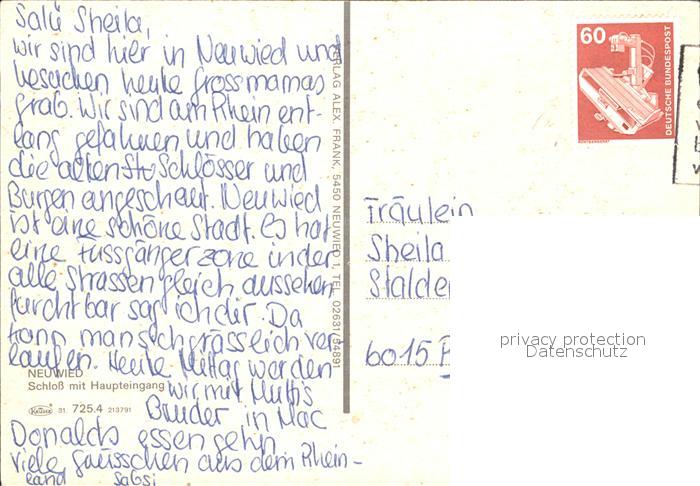 Salü Sheila,
wir sind hier in Neuwied und
besuchen heute Grossmamas
Grab. Wir sind am Rhein ent-
lang gefahren und haben
die Schlösser und
Burgen angeschaut. Neuwied
ist eine schöne Stadt. Es hat
eine Fussgängerzone in der
alle Strassen gleich aussehen
furchtbar sag ich dir. Da
kann man sich grässlich ver-
laufen. Heute Mittag werden
wir mit Muttis
Bruder in Mac
Donalds essen gehn
viele Grüsschen aus dem Rhein-
land Sabsi
NEUWIED
Schloß mit Haupteingang
Krüger 31. 725.4 213791
VERLAG ALEX. FRANK, 5450 NEUWIED 1, TEL. 02631/34891
60
DEUTSCHE BUNDESPOST
Fräulein
Sheila
Stalde
6015
privacy protection
Datenschutz